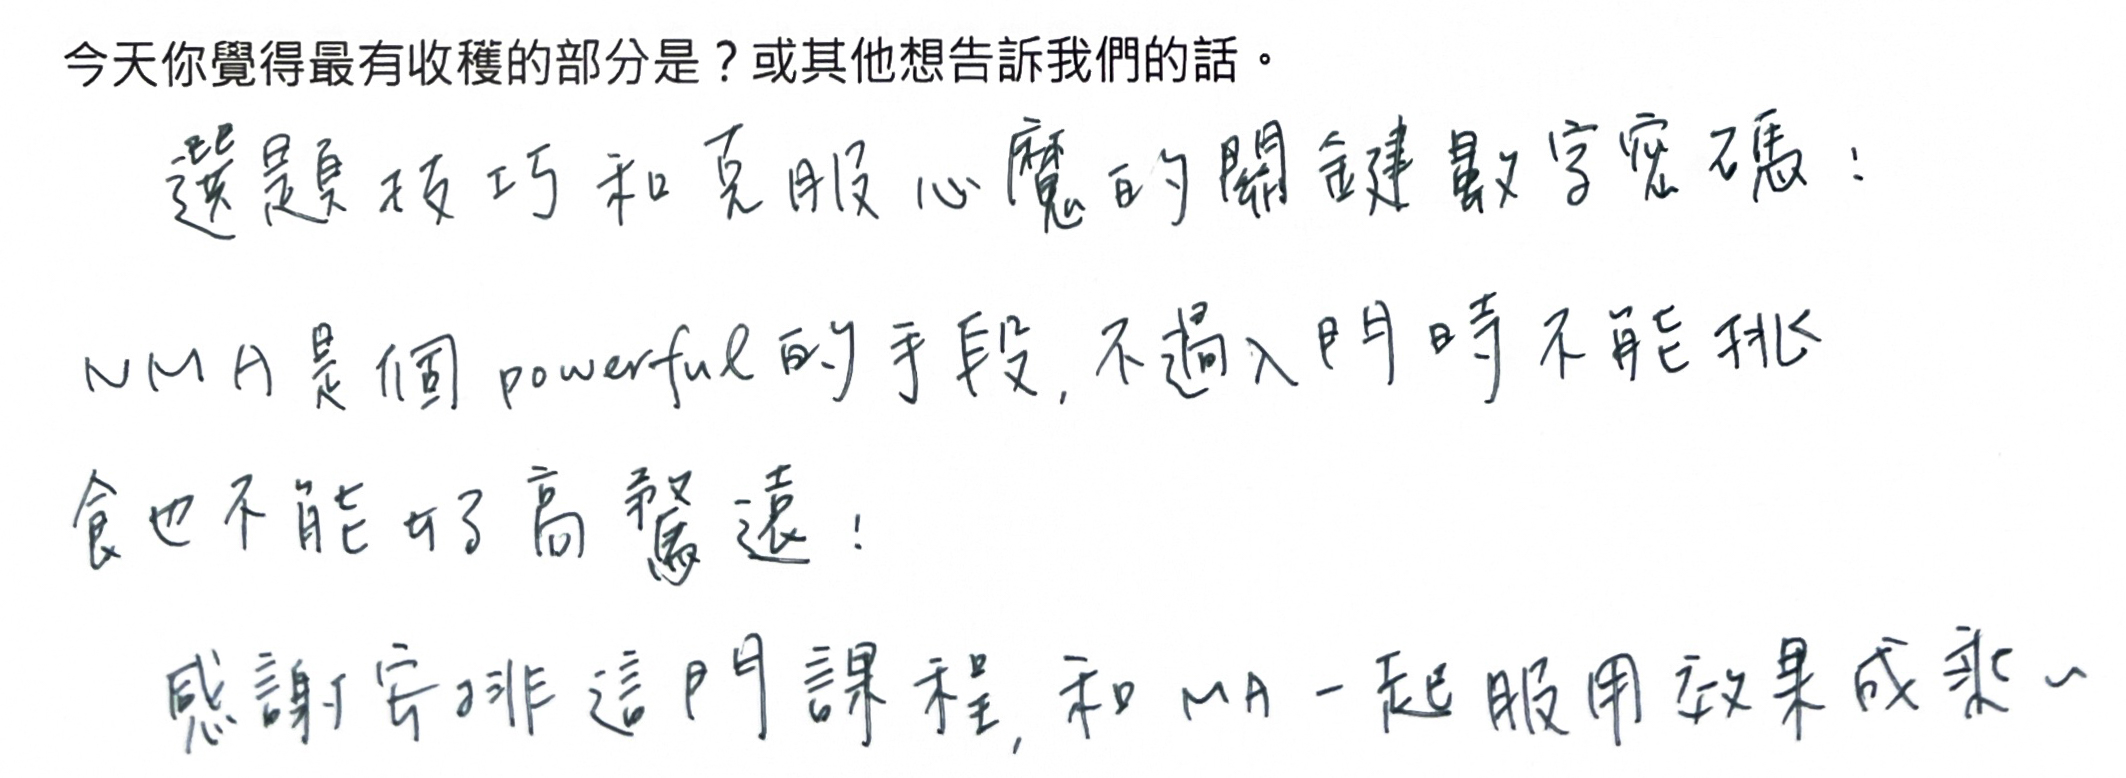 今天你覺得最有收穫的部分是？或其他想告訴我們的話。
選題技巧和克服心魔的關鍵數字密碼！
NMA是個powerful的手段，不過入門時不能挑
食也不能好高騖遠！
感謝安排這門課程，和MA一起服用效果成雙~